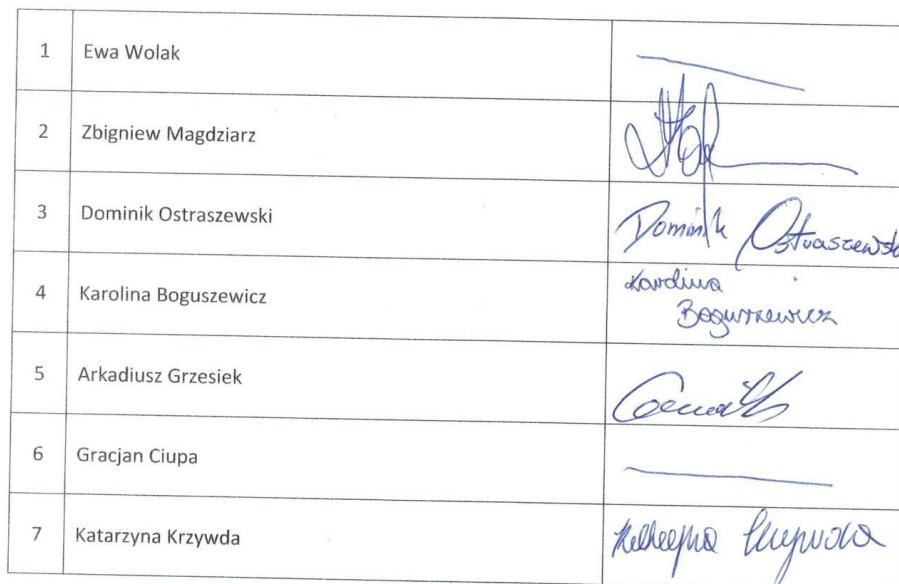 1 Ewa Wolak
2 Zbigniew Magdziarz
3 Dominik Ostraszewski Dominik Ostraszewski
4 Karolina Boguszewicz Karolina
Boguszewicz
5 Arkadiusz Grzesiek
6 Gracjan Ciupa
7 Katarzyna Krzywda Katarzyna Krzywda